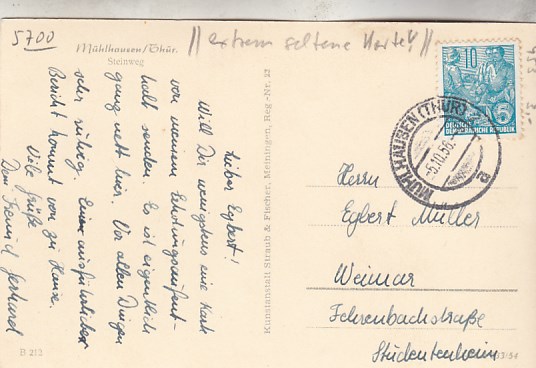 5700
Mühlhausen/Thür.
Steinweg
|| extrem seltene Karte! ||
Lieber Egbert!
Will Dir wenigstens eine Karte
von meinem Erholungsaufent-
halt senden. Es ist eigentlich
ganz nett hier. Vor allen Dingen
sehr ruhig. Einen ausführlichen
Bericht kommt von zu Hause.
Viele Grüße
Dein Freund Gerhard
B 212
Kunstanstalt Straub & Fischer, Meiningen, Reg.-Nr. 22
10
6
DEUTSCHE
DEMOKRATISCHE REPUBLIK
MÜHLHAUSEN (THÜR)
-5.10.56
Herrn
Egbert Müller
Weimar
Fehrenbachstraße
Studentenheim